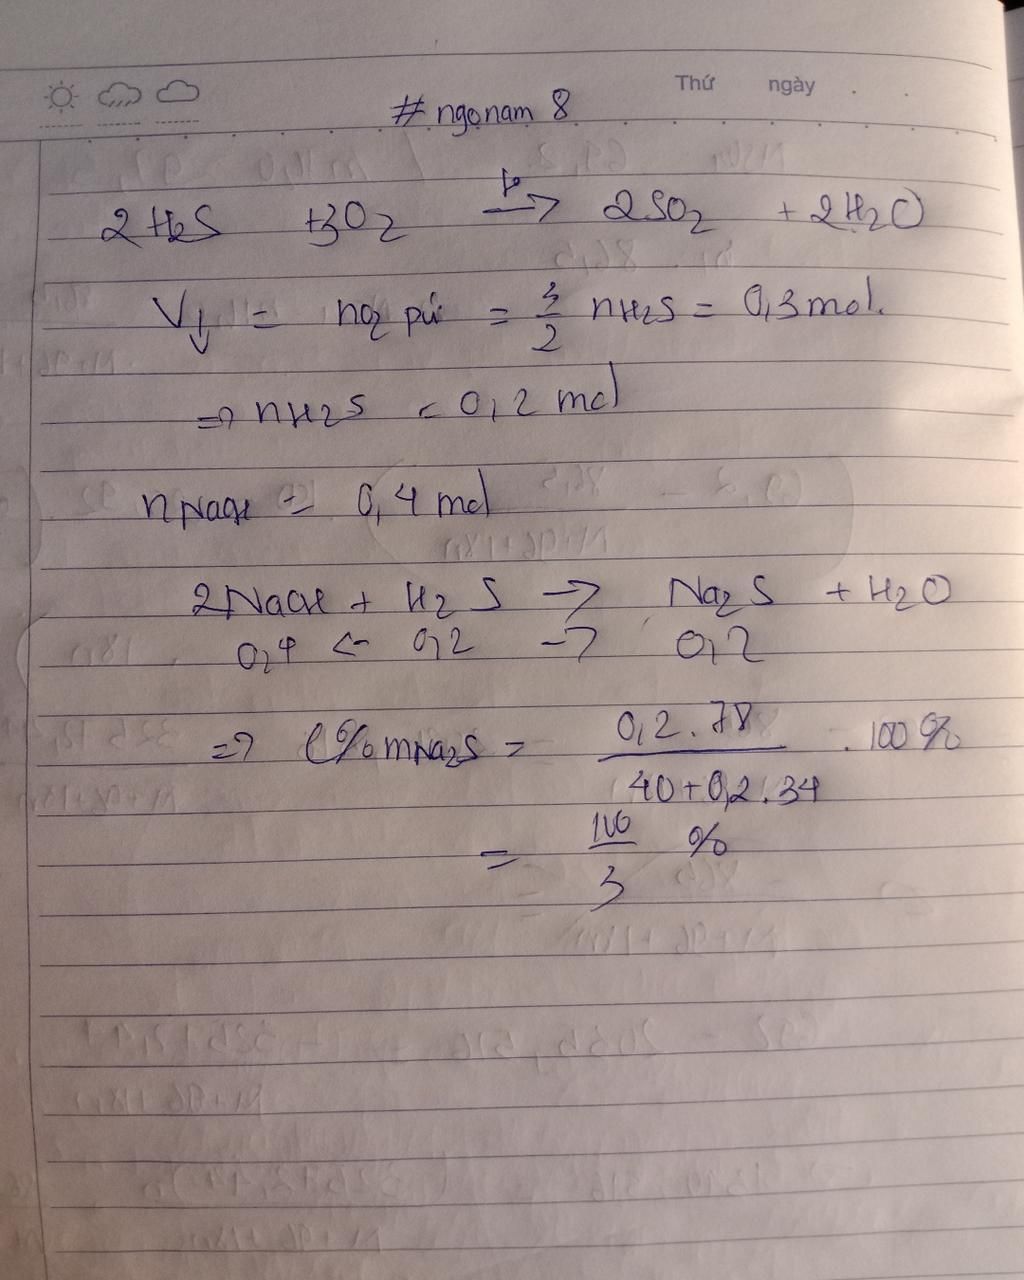 Thứ ngày
# ngonam 8
2H2S +3O2 t° → 2SO2 + 2H2O
V↓ = nO2 pứ = 3/2 nH2S = 0,3 mol.
=> nH2S = 0,2 mol
nNaOH = 0,4 mol
2NaOH + H2S → Na2S + H2O
0,4 <- 0,2 → 0,2
=> C%mNa2S = 0,2.78 / 40+0,2.34 . 100%
= 100/3 %